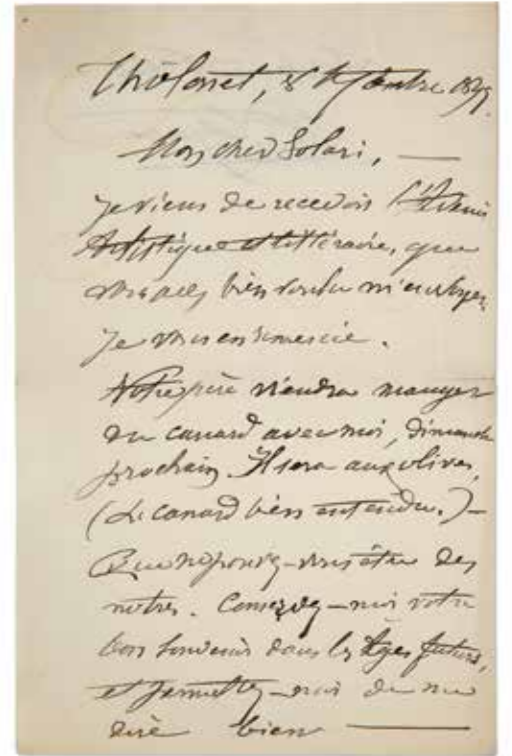 Tholonet, 8 septembre 1897.
Mon cher Solari,
je viens de recevoir l'Avenir
Artistique et littéraire, que
vous avez bien voulu m'envoyer.
Je vous en remercie.
Votre père viendra manger
un canard avec moi, dimanche
prochain. Il sera aux olives,
(Le canard bien entendu.) -
Que ne pouvez-vous être des
nôtres. Conservez-moi votre
bon souvenir dans les âges futurs,
et permettez-moi de me
dire bien